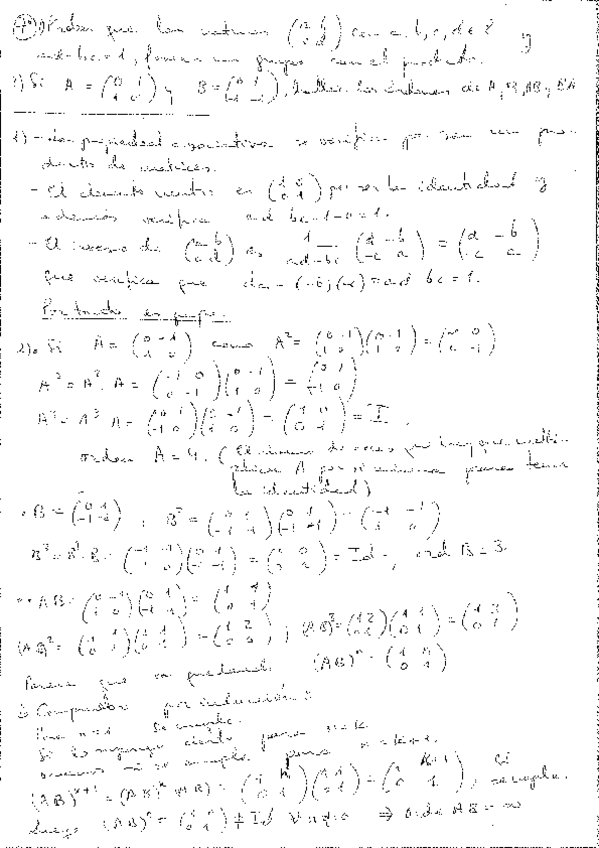 1) Probar que las matrices (a b / c d) con a, b, c, d ∈ Z y
ad-bc=1, forman un grupo con el producto.
2) Si A = (0 -1 / 1 0) y B = (0 1 / -1 -1), hallar los órdenes de A, B, AB y BA
1) - La propiedad asociativa se verifica por ser un pro-
ducto de matrices.
- El elemento neutro es (1 0 / 0 1) por ser la identidad y
además verifica ad-bc=1-0=1.
- El inverso de (a b / c d) es 1/(ad-bc) (d -b / -c a) = (d -b / -c a)
que verifica que da-(-b)(-c)=ad-bc=1.
Por tanto es grupo.
2) Si A = (0 -1 / 1 0) como A² = (0 -1 / 1 0)(0 -1 / 1 0) = (-1 0 / 0 -1)
A³ = A²·A = (-1 0 / 0 -1)(0 -1 / 1 0) = (0 1 / -1 0)
A⁴ = A³·A = (0 1 / -1 0)(0 -1 / 1 0) = (1 0 / 0 1) = I.
orden A = 4. (El número de veces que hay que multi-
plicar A por sí misma para tener
la identidad)
B = (0 1 / -1 -1), B² = (0 1 / -1 -1)(0 1 / -1 -1) = (-1 -1 / 1 0)
B³ = B²·B = (-1 -1 / 1 0)(0 1 / -1 -1) = (1 0 / 0 1) = Id, ord B = 3
AB = (0 -1 / 1 0)(0 1 / -1 -1) = (1 1 / 0 1)
(AB)² = (1 1 / 0 1)(1 1 / 0 1) = (1 2 / 0 1); (AB)³ = (1 2 / 0 1)(1 1 / 0 1) = (1 3 / 0 1)
Parece que va quedando (AB)ⁿ = (1 n / 0 1)
Comprobar por inducción:
Para n=1 se cumple.
Si lo supongo cierto para n=k
veamos si se cumple para n=k+1.
(AB)ᵏ⁺¹ = (AB)ᵏ(AB) = (1 k / 0 1)(1 1 / 0 1) = (1 k+1 / 0 1), Sí se cumple.
Luego (AB)ⁿ = (1 n / 0 1) ≠ Id ∀ n≠0 ⇒ orden AB = ∞